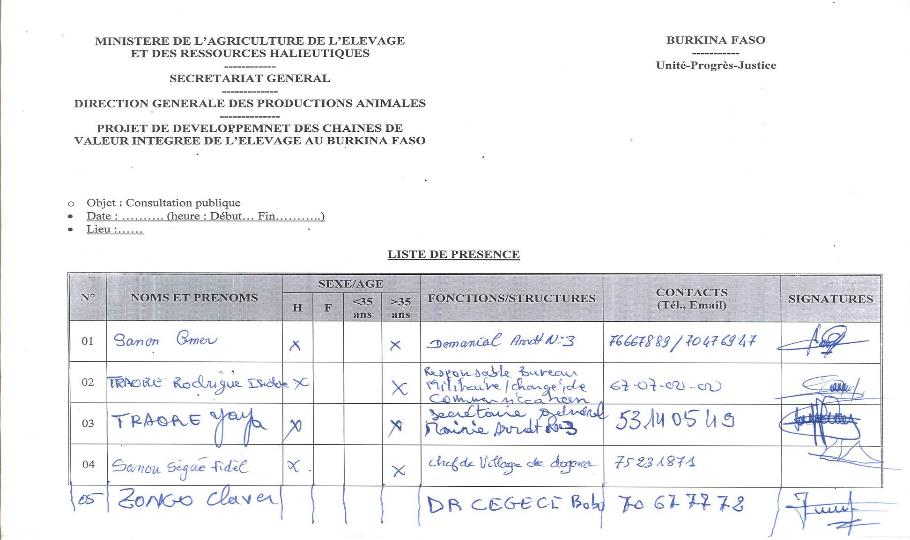 MINISTERE DE L'AGRICULTURE DE L'ELEVAGE
ET DES RESSOURCES HALIEUTIQUES
------------
SECRETARIAT GENERAL
-------------
DIRECTION GENERALE DES PRODUCTIONS ANIMALES
--------------
PROJET DE DEVELOPPEMNET DES CHAINES DE
VALEUR INTEGREE DE L'ELEVAGE AU BURKINA FASO
BURKINA FASO
-----------
Unité-Progrès-Justice
o Objet : Consultation publique
• Date : .......... (heure : Début... Fin...........)
• Lieu :......
LISTE DE PRESENCE
N° NOMS ET PRENOMS SEXE/AGE FONCTIONS/STRUCTURES CONTACTS SIGNATURES
(Tél., Email)
H F <35 ans >35 ans
01 Sanon Omer X X Domanial Arrdt N°3 76667889 / 70476947
02 TRAORE Rodrigue X X Responsable Bureau
Militaire/chargé de
Communication
67-07-00-00
03 TRAORE Yaya X X Secrétaire Général
Mairie Arrdt N°3
53140549
04 Sanou Fidèl X X Chef de Village de dogona 75231871
05 ZONGO Claver DR CEGECI Bobo 70 67 77 72